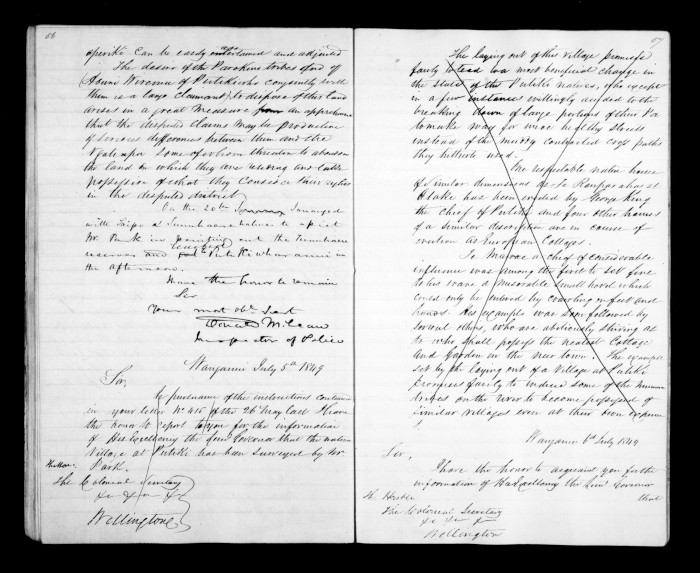 56
can be easily ascertained and adjusted
The desire of the tribes and of
of Putiki who conjointly with
them is a large claimant to dispose of this land
arises in a great measure from an apprehension
that the disputed claims may be productive
of serious differences between them and the
some of whom threaten to
the land on which they are residing and take
possession of what they consider their rights
in the disputed district.
On the 20th I arranged
with to assist
Mr Park in pointing out the
reserves and Putiki when in
the afternoon.
I have the honor to remain
Sir
Your most obt Servt
Donald McLean
Inspector of Police
Wanganui July 5th 1849
Sir,
In pursuance of the instructions contained
in your letter No 415 of the 26 May last I have
the honor to report to you for the information
of His Excellency the Lieut Governor that the native
Village at Putiki has been surveyed by Mr
Park.
The Honble
The Colonial Secretary
&c &c &c
Wellington
57
The laying out of this village promises
fairly to lead to a most beneficial change in
the state of the Putiki natives, who except
in a few instances willingly acceded to the
breaking down of large portions of their Pa
to make way for wide healthy streets
instead of the muddy contracted paths
they hitherto used.
One respectable native house
of similar dimensions to at
Otaki has been erected by George King
the chief of Putiki and four other houses
of a similar description are in course of
erection as European Cottages.
a chief of considerable
influence was among the first to set fire
to his ware a miserable small hovel which
could only be entered by crawling on feet and
hands. His example was soon followed by
several others, who are striving as
to who shall possess the neatest Cottage
and Garden in the new town. The example
set by the laying out of a Village at Putiki
promises fairly to induce some of the
tribes on the river to become possessed of
similar villages even at their own expense
Wanganui 6th July 1849
Sir,
I have the honor to acquaint you for the
information of His Excellency the Lieut Governor
that
The Honble
The Colonial Secretary
&c &c &c
Wellington